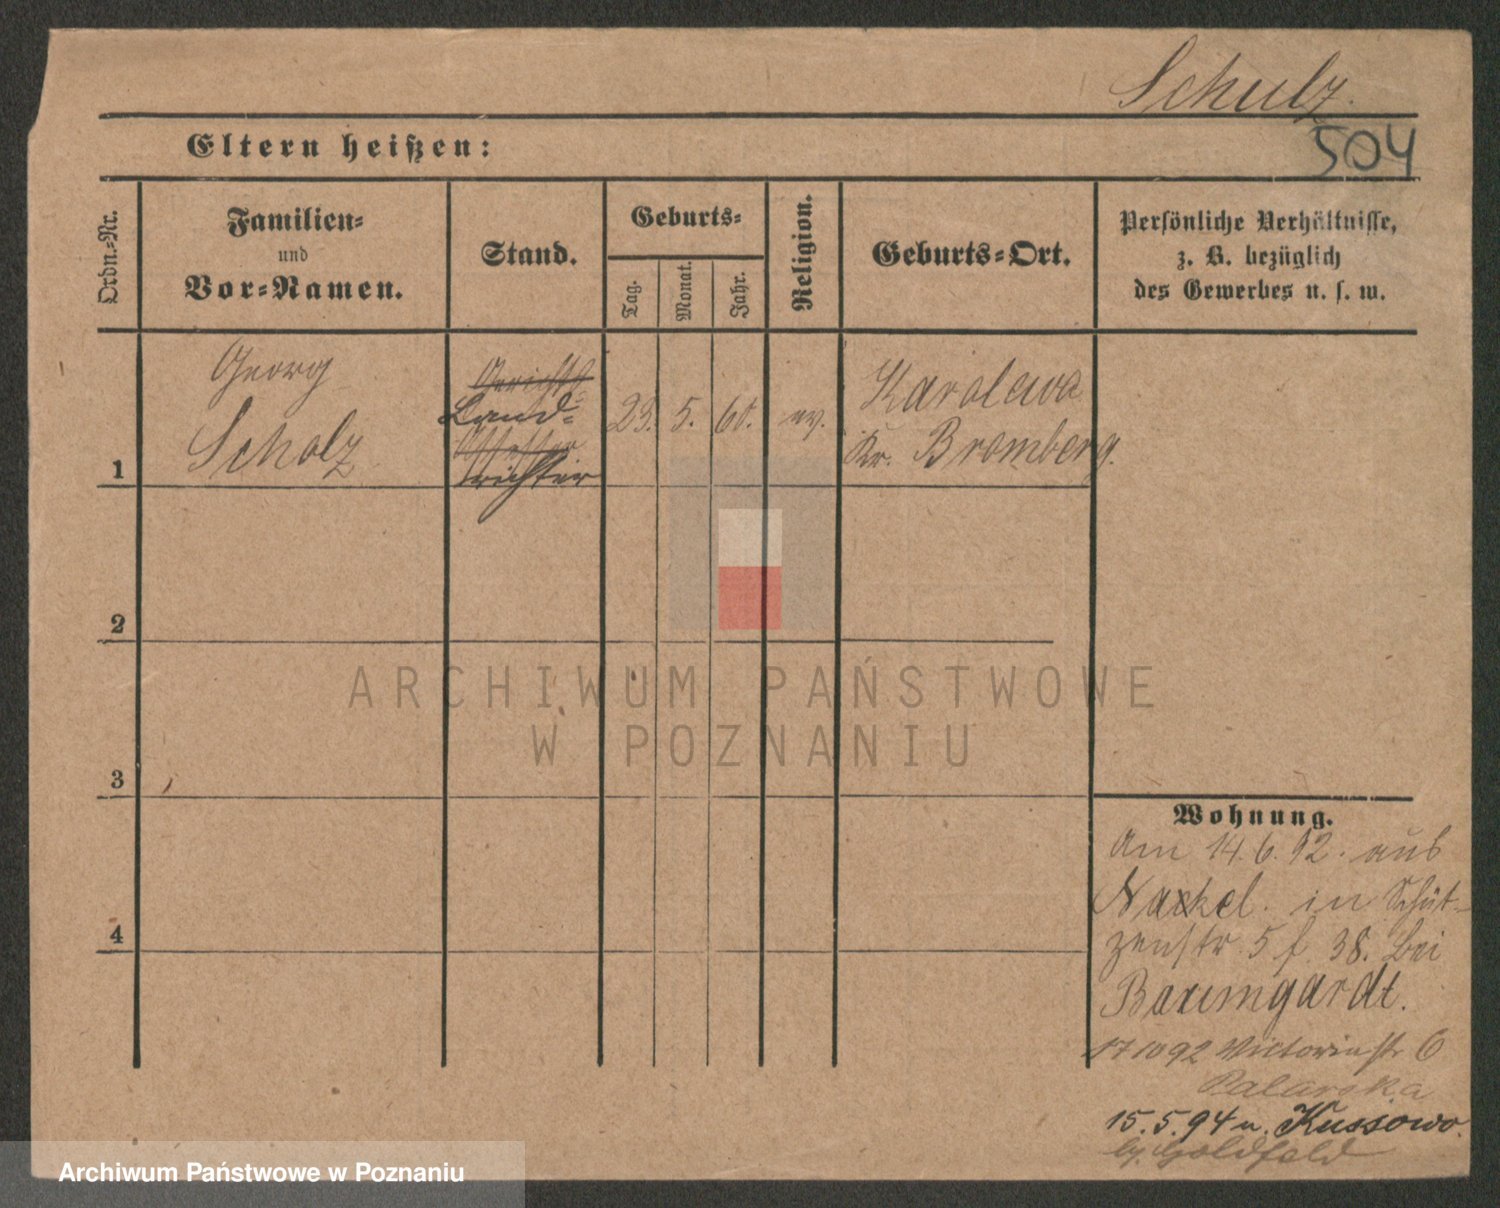 Schulz.
504
Eltern heißen:
Ordn.-Nr.
Familien-
und
Vor-Namen.
Stand.
Geburts-
Tag.
Monat.
Jahr.
Religion.
Geburts-Ort.
Persönliche Verhältnisse,
z. B. bezüglich
des Gewerbes u. s. w.
1
Georg
Scholz
Gerichts-
Land-
Assessor
richter
23.
5.
60.
ev.
Karolewo
Kr. Bromberg.
2
3
4
Wohnung.
Am 14.6.92. aus
Nackel. in Schüt-
zenstr. 5 f. 38. bei
Baumgardt.
17 10 92 Victoriastr 6
15.5.94 n. Kussowo.
Goldfeld
ARCHIWUM PAŃSTWOWE
W POZNANIU
Archiwum Państwowe w Poznaniu